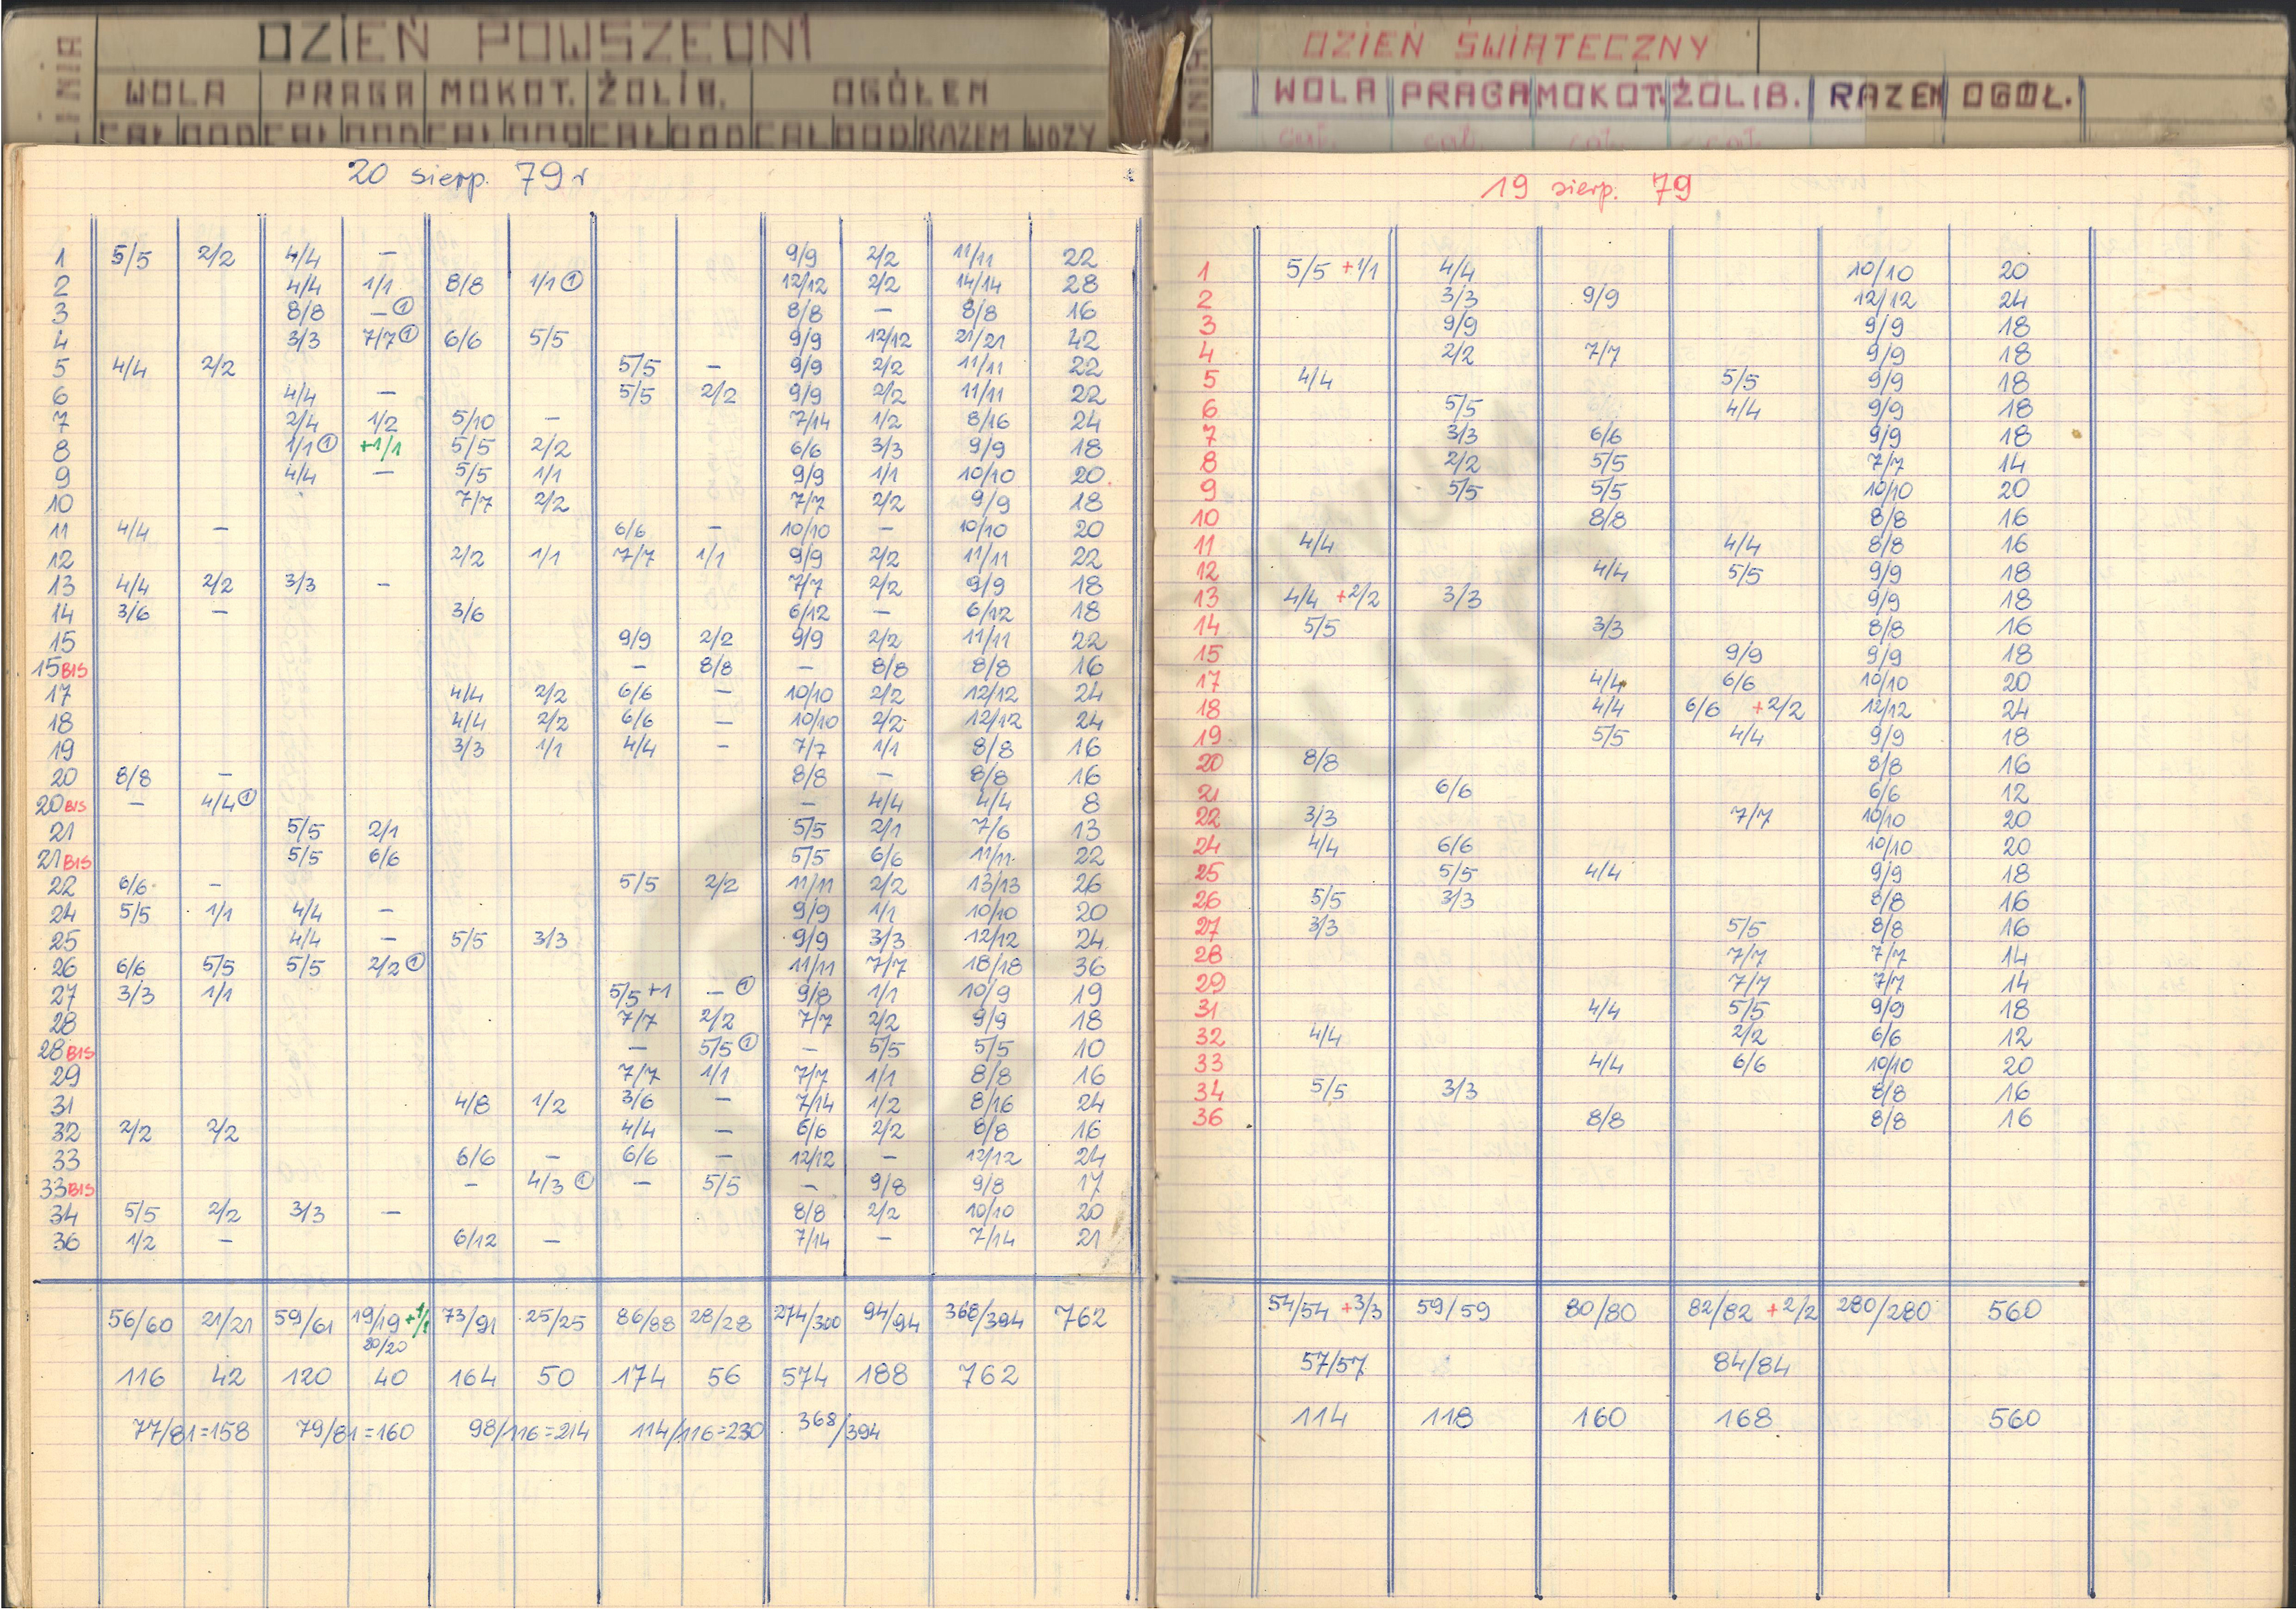 LINIA DZIEŃ POWSZEDNI
WOLA PRAGA MOKOT. ŻOLIB. OGÓŁEM
CAŁ ODD CAŁ ODD CAŁ ODD CAŁ ODD CAŁ ODD RAZEM WOZY
20 sierp. 79 r
1 5/5 2/2 4/4 — 9/9 2/2 11/11 22
2 4/4 1/1 8/8 1/1 ① 12/12 2/2 14/14 28
3 8/8 — ① 8/8 — 8/8 16
4 3/3 7/7 ① 6/6 5/5 9/9 12/12 21/21 42
5 4/4 2/2 5/5 — 9/9 2/2 11/11 22
6 4/4 — 5/5 2/2 9/9 2/2 11/11 22
7 2/4 1/2 5/10 — 7/14 1/2 8/16 24
8 1/1 ① +1/1 5/5 2/2 6/6 3/3 9/9 18
9 4/4 — 5/5 1/1 9/9 1/1 10/10 20
10 7/7 2/2 7/7 2/2 9/9 18
11 4/4 — 6/6 — 10/10 — 10/10 20
12 2/2 1/1 7/7 1/1 9/9 2/2 11/11 22
13 4/4 2/2 3/3 — 7/7 2/2 9/9 18
14 3/6 — 3/6 6/12 — 6/12 18
15 9/9 2/2 9/9 2/2 11/11 22
15 BIS — 8/8 — 8/8 8/8 16
17 4/4 2/2 6/6 — 10/10 2/2 12/12 24
18 4/4 2/2 6/6 — 10/10 2/2 12/12 24
19 3/3 1/1 4/4 — 7/7 1/1 8/8 16
20 8/8 — 8/8 — 8/8 16
20 BIS — 4/4 ① — 4/4 4/4 8
21 5/5 2/1 5/5 2/1 7/6 13
21 BIS 5/5 6/6 5/5 6/6 11/11 22
22 6/6 — 5/5 2/2 11/11 2/2 13/13 26
24 5/5 1/1 4/4 — 9/9 1/1 10/10 20
25 4/4 — 5/5 3/3 9/9 3/3 12/12 24
26 6/6 5/5 5/5 2/2 ① 11/11 7/7 18/18 36
27 3/3 1/1 5/5 +1 — ① 9/8 1/1 10/9 19
28 7/7 2/2 7/7 2/2 9/9 18
28 BIS — 5/5 ① — 5/5 5/5 10
29 7/7 1/1 7/7 1/1 8/8 16
31 4/8 1/2 3/6 — 7/14 1/2 8/16 24
32 2/2 2/2 4/4 — 6/6 2/2 8/8 16
33 6/6 — 6/6 — 12/12 — 12/12 24
33 BIS — 4/3 ① — 5/5 — 9/8 9/8 17
34 5/5 2/2 3/3 — 8/8 2/2 10/10 20
36 1/2 — 6/12 — 7/14 — 7/14 21
56/60 21/21 59/61 19/19 +1/1 73/91 25/25 86/88 28/28 274/300 94/94 368/394 762
20/20
116 42 120 40 164 50 174 56 574 188 762
77/81=158 79/81=160 98/116=214 114/116=230 368/394
LINIA DZIEŃ ŚWIĄTECZNY
WOLA PRAGA MOKOT. ŻOLIB. RAZEM OGÓŁ.
cał. cał. cał. cał.
19 sierp. 79
1 5/5 +1/1 4/4 10/10 20
2 3/3 9/9 12/12 24
3 9/9 9/9 18
4 2/2 7/7 9/9 18
5 4/4 5/5 9/9 18
6 5/5 4/4 9/9 18
7 3/3 6/6 9/9 18
8 2/2 5/5 7/7 14
9 5/5 5/5 10/10 20
10 8/8 8/8 16
11 4/4 4/4 8/8 16
12 4/4 5/5 9/9 18
13 4/4 +2/2 3/3 9/9 18
14 5/5 3/3 8/8 16
15 9/9 9/9 18
17 4/4 6/6 10/10 20
18 4/4 6/6 +2/2 12/12 24
19 5/5 4/4 9/9 18
20 8/8 8/8 16
21 6/6 6/6 12
22 3/3 7/7 10/10 20
24 4/4 6/6 10/10 20
25 5/5 4/4 9/9 18
26 5/5 3/3 8/8 16
27 3/3 5/5 8/8 16
28 7/7 7/7 14
29 7/7 7/7 14
31 4/4 5/5 9/9 18
32 4/4 2/2 6/6 12
33 4/4 6/6 10/10 20
34 5/5 3/3 8/8 16
36 8/8 8/8 16
54/54 +3/3 59/59 80/80 82/82 +2/2 280/280 560
57/57 84/84
114 118 160 168 560